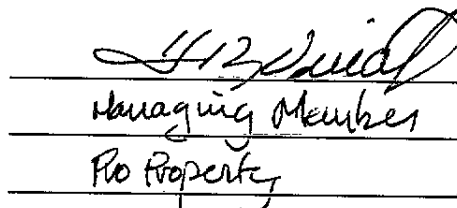 Managing Member
Pro Property